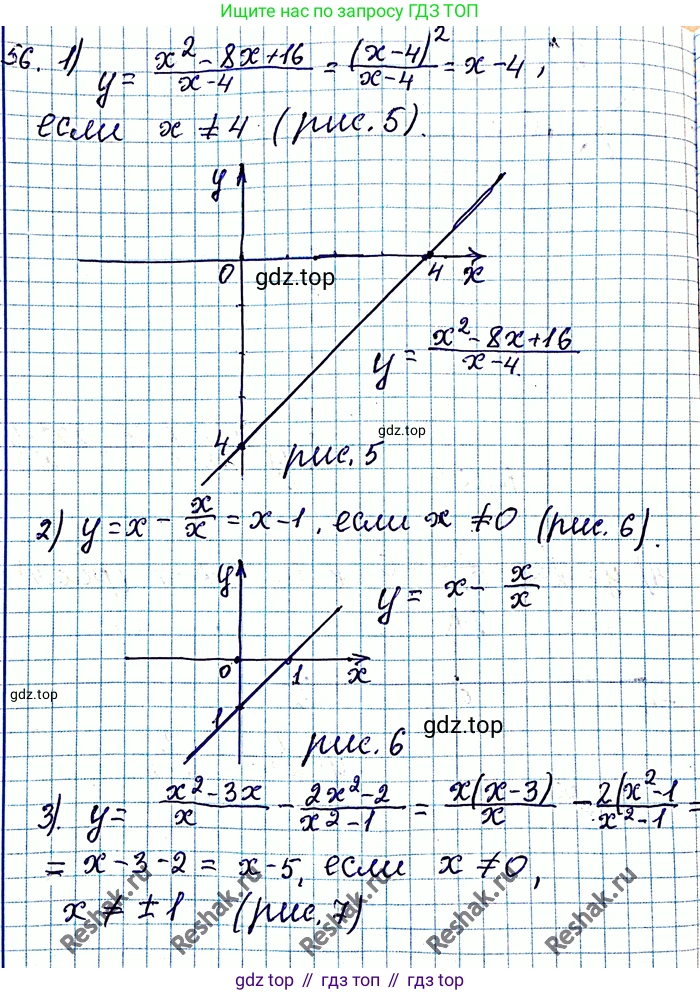 Ищите нас по запросу ГДЗ ТОП
56. 1) y = (x² - 8x + 16)/(x - 4) = (x-4)²/(x-4) = x - 4,
если x ≠ 4 (рис. 5).
y
0
gdz.top
4
x
y = (x² - 8x + 16)/(x - 4)
gdz.top
4
рис. 5
2) y = x - x/x = x - 1, если x ≠ 0 (рис. 6).
y
y = x - x/x
0
1
x
gdz.top
1
gdz.top
рис. 6
3). y = (x² - 3x)/x - (2x² - 2)/(x² - 1) = x(x-3)/x - 2(x² - 1/(x² - 1) =
= x - 3 - 2 = x - 5, если x ≠ 0,
x ≠ ± 1 (рис. 7)
Reshak.ru Reshak.ru Reshak.ru Reshak.ru Reshak.ru
gdz top // гдз топ // gdz.top